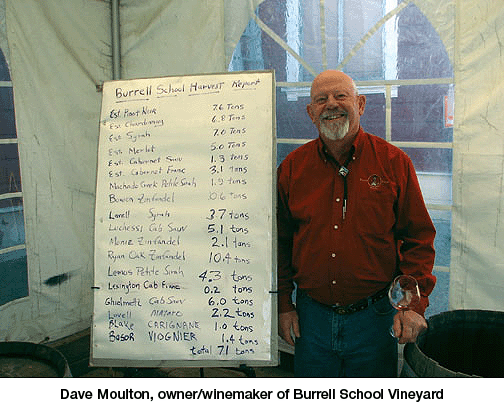 Burrell School Harvest Report
Est. Pinot Noir 7.6 Tons
Est. Chardonnay 6.8 Tons
Est. Syrah 7.0 Tons
Est. Merlot 5.0 Tons
Est. Cabernet Sauv 1.3 Tons
Est. Cabernet Franc 3.1 Tons
Machado Creek Petite Sirah 1.9 tons
Zinfandel
Lovell Syrah 3.7 tons
Luchessi Cab Sauv 5.1 tons
Moniz Zinfandel 2.1 tons
Ryan Oak Zinfandel 10.4 tons
Lemos Petite Sirah 4.3 tons
Lexington Cab Franc 0.2 tons
Ghielmetti Cab Sauv 6.0 tons
Lovell MATARO 2.2 tons
Blake CARIGNANE 1.0 tons
BOSOR VIOGNIER 1.4 tons
total 71 tons
Dave Moulton, owner/winemaker of Burrell School Vineyard